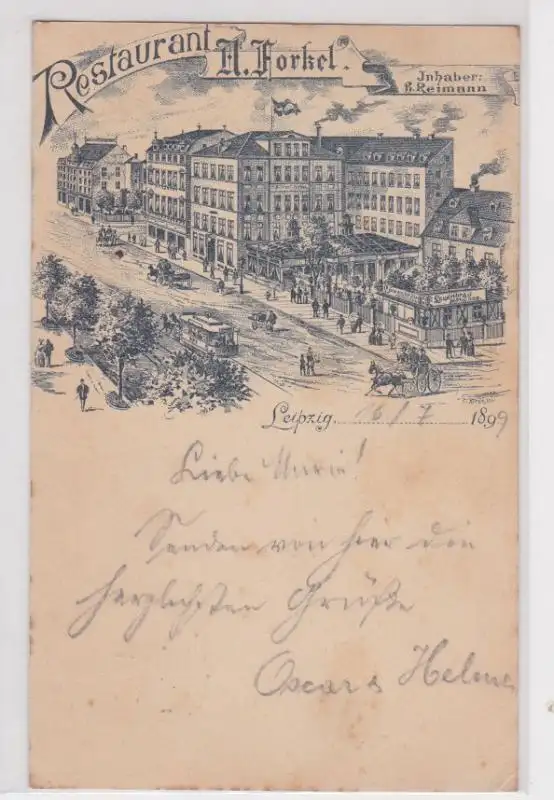 Restaurant A. Forkel.
Inhaber:
B. Reimann
Leipzig, 16/7 1899
Liebe Marie!
Senden von hier die
herzlichsten Grüße
Oscar &